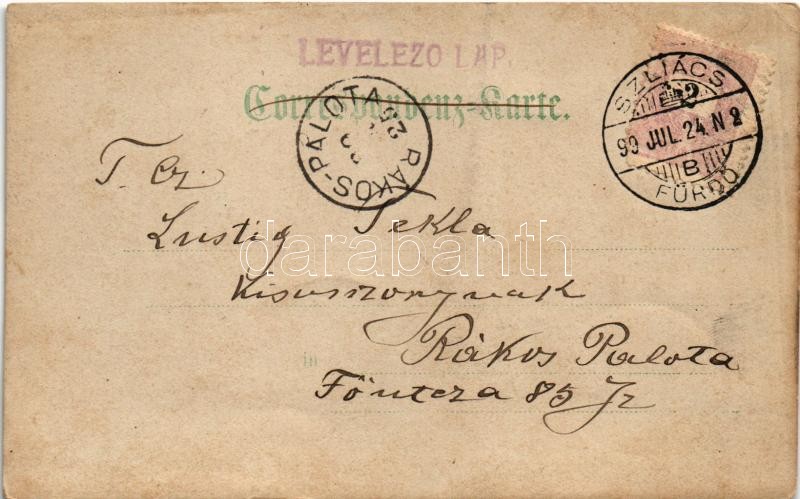 LEVELEZO LAP.
Correspondenz-Karte.
SZLIÁCS
99 JUL. 24. N 2
B
FÜRDŐ
RÁKOS-PALOTA
T. Cz.
Lustig Tekla
kisasszonynak
in Rákos Palota
Főutcza 85
darabanth